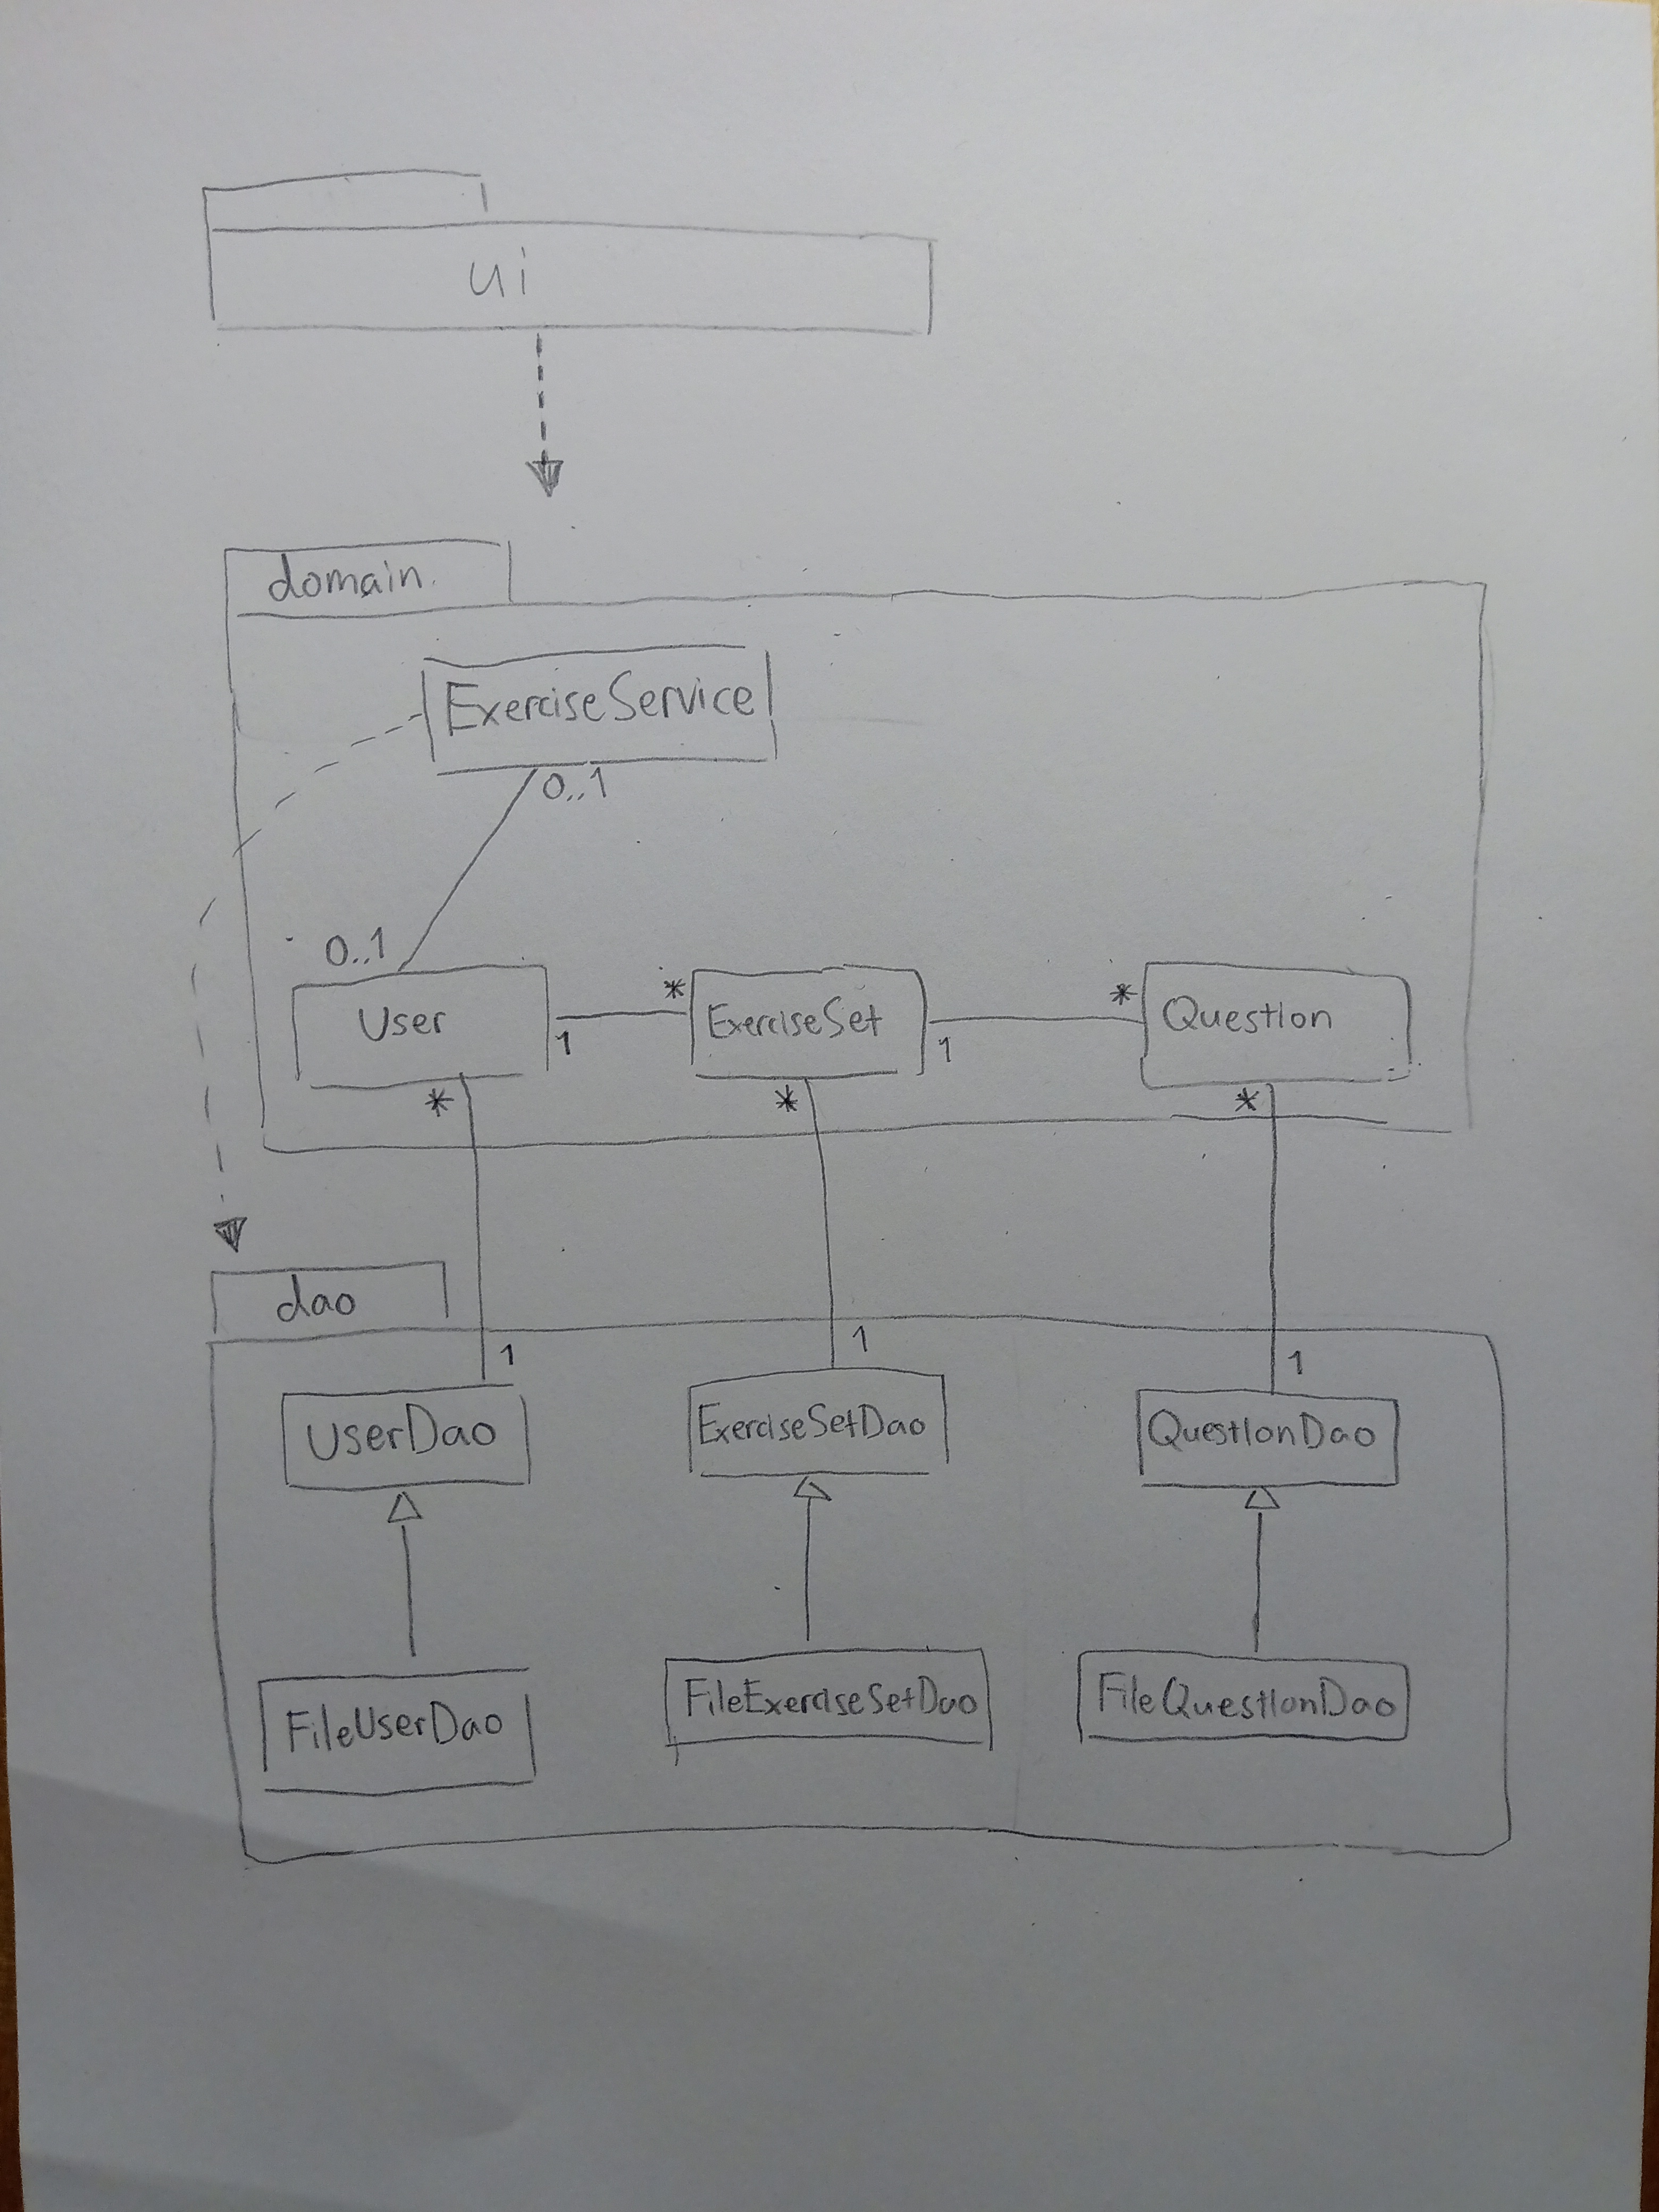 ui
domain
ExerciseService
0..1
0..1
User
1
*
ExerciseSet
1
*
Question
*
*
*
dao
1
1
1
UserDao
ExerciseSetDao
QuestionDao
FileUserDao
FileExerciseSetDao
FileQuestionDao